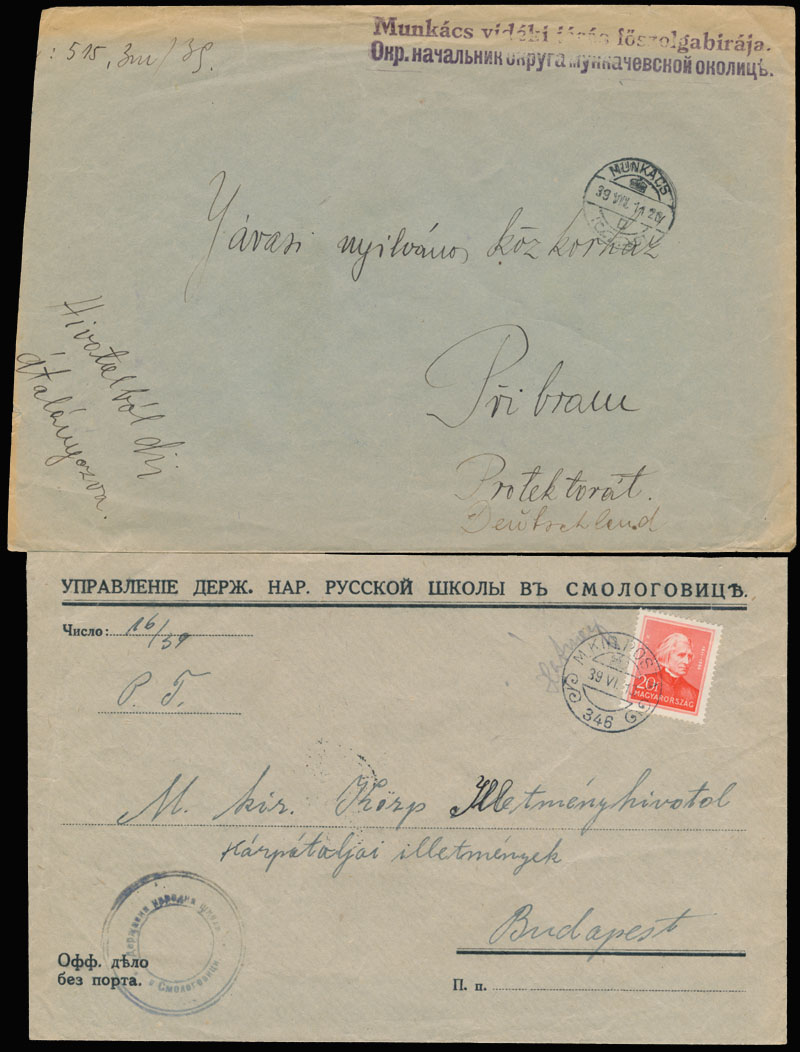 : 515, 3m/39.
Munkács vidéki járás főszolgabirája.
Окр. начальник округа мункачевской околицѣ.
MUNKÁCS
39 VII. 11
Járási nyilvános közkorház
Hivatalból díj
átalányozva.
Příbram
Protektorát.
Deutschland
УПРАВЛЕНІЕ ДЕРЖ. НАР. РУССКОЙ ШКОЛЫ ВЪ СМОЛОГОВИЦѢ.
Число: 16/39
P. T.
M. KIR. POS
39 VI.
346
20f
MAGYARORSZÁG
M. kir. Közp Illetményhivatal
Kárpátaljai illetmények
Budapest
Державна народна школа
в Смологовици
Офф. дѣло
без порта.
П. п.